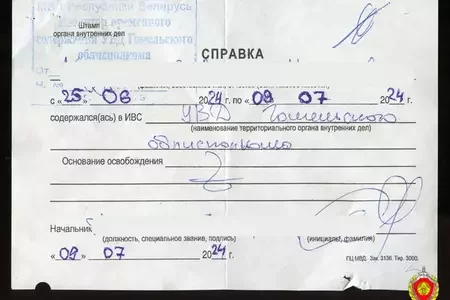 МВД Республики Беларусь
временного
содержания УВД Гомельского
облисполкома
Штамп
органа внутренних дел
СПРАВКА
с «25» 06 2024 г. по «09» 07 2024 г.
содержался(ась) в ИВС УВД Гомельского
(наименование территориального органа внутренних дел)
облисполкома
Основание освобождения
Начальник
(должность, специальное звание, подпись) (инициалы, фамилия)
«09» 07 2024 г. ПЦ МВД. Зак. 3136. Тир. 3000.